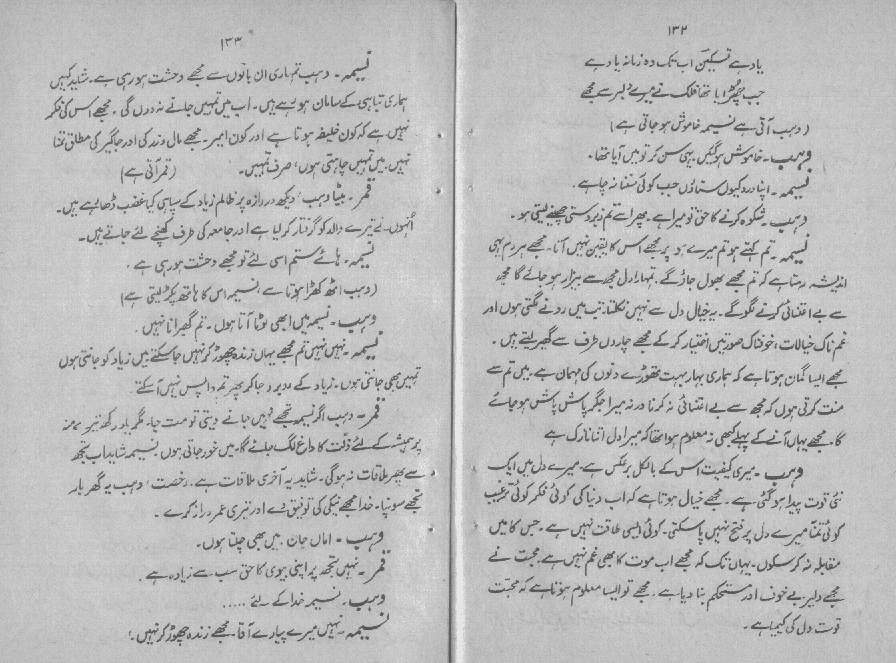 ۱۳۲
یاد ہے تسکین اب تک وہ زمانہ یاد ہے
جب چھڑایا تھا فلک نے میرے دلبر سے مجھے
(وہب آتی ہے نسیمہ خاموش ہو جاتی ہے)
وہب۔ خاموش ہو گئیں یہی سن کر تو میں آیا تھا۔
نسیمہ۔ اپنا درد کیوں سناؤں جب کوئی سننا نہ چاہے۔
وہب۔ شکوہ کرنے کا حق تو میرا ہے۔ پھر اسے تم زبردستی چھینے لیتی ہو۔
نسیمہ۔ تم کہتے ہو تم میرے ہو پر مجھے اس کا یقین نہیں آتا۔ مجھے ہر دم یہی
اندیشہ رہتا ہے کہ تم مجھے بھول جاؤ گے۔ تمہارا دل مجھ سے بیزار ہو جائے گا مجھ
سے بے اعتنائی کرنے لگو گے۔ یہ خیال دل سے نہیں نکلتا۔ تب میں رونے لگتی ہوں اور
غم ناک خیالات، خوفناک صورتیں اختیار کر کے مجھے چاروں طرف سے گھیر لیتے ہیں۔
مجھے ایسا گمان ہوتا ہے کہ ہماری بہار بہت تھوڑے دنوں کی مہمان ہے۔ میں تم سے
منت کرتی ہوں کہ مجھ سے بے اعتنائی نہ کرنا ورنہ میرا جگر پاش پاش ہو جائے
گا۔ مجھے یہاں آنے کے پہلے کبھی نہ معلوم ہوا تھا کہ میرا دل اتنا نازک ہے
وہب۔ میری کیفیت اس کے بالکل برعکس ہے۔ میرے دل میں ایک
نئی قوت پیدا ہو گئی ہے۔ مجھے خیال ہوتا ہے کہ اب دنیا کی کوئی فکر کوئی ترغیب
کوئی تمنا میرے دل پر فتح نہیں پا سکتی۔ کوئی ایسی طاقت نہیں ہے۔ جس کا میں
مقابلہ نہ کر سکوں۔ یہاں تک کہ مجھے اب موت کا بھی غم نہیں ہے۔ محبت نے
مجھے دلیر بے خوف اور مستحکم بنا دیا ہے۔ مجھے تو ایسا معلوم ہوتا ہے کہ محبت
قوت دل کی کیمیا ہے۔
۱۳۳
نسیمہ۔ وہب تمہاری ان باتوں سے مجھے وحشت ہو رہی ہے۔ شاید کہیں
ہماری تباہی کے سامان ہو رہے ہیں۔ اب میں تمہیں جانے نہ دوں گی۔ مجھے اس کی فکر
نہیں ہے کہ کون خلیفہ ہوتا ہے اور کون امیر۔ مجھے مال و زر کی اور جاگیر کی مطلق تمنا
نہیں۔ میں تمہیں چاہتی ہوں، صرف تمہیں۔ (قمر آتی ہے)
قمر۔ بیٹا وہب، دیکھ دروازہ پر ظالم زیاد کے سپاہی کیا غضب ڈھا رہے ہیں۔
انہوں نے تیرے والد کو گرفتار کر لیا ہے اور جامعہ کی طرف کھینچے لئے جاتے ہیں۔
نسیمہ۔ ہائے ستم اسی لئے تو مجھے وحشت ہو رہی ہے۔
(وہب اٹھ کھڑا ہوتا ہے، نسیمہ اس کا ہاتھ پکڑ لیتی ہے)
وہب۔ نسیمہ میں ابھی لوٹا آتا ہوں۔ تم گھبرانا نہیں۔
نسیمہ۔ نہیں نہیں تم مجھے یہاں زندہ چھوڑ کر نہیں جا سکتے میں زیاد کو جانتی ہوں
تمہیں بھی جانتی ہوں۔ زیاد کے روبرو جا کر پھر تم واپس نہیں آ سکتے
قمر۔ وہب اگر نسیمہ تجھے نہیں جانے دیتی تو مت جا، مگر یاد رکھ تیرے منہ
پر ہمیشہ کے لئے ذلت کا داغ لگ جائے گا۔ میں خود جاتی ہوں۔ نسیمہ شاید اب تجھ
سے پھر ملاقات نہ ہوگی۔ شاید یہ آخری ملاقات ہے۔ رخصت، وہب یہ گھر بار
تجھے سونپا۔ خدا مجھے نیکی کی توفیق دے اور تیری عمر دراز کرے۔
وہب۔ اماں جان میں بھی چلتا ہوں۔
قمر۔ نہیں تجھ پر اپنی بیوی کا حق سب سے زیادہ ہے
وہب۔ نسیمہ خدا کے لئے .....
نسیمہ۔ نہیں میرے پیارے آقا۔ مجھے زندہ چھوڑ کر نہیں۔